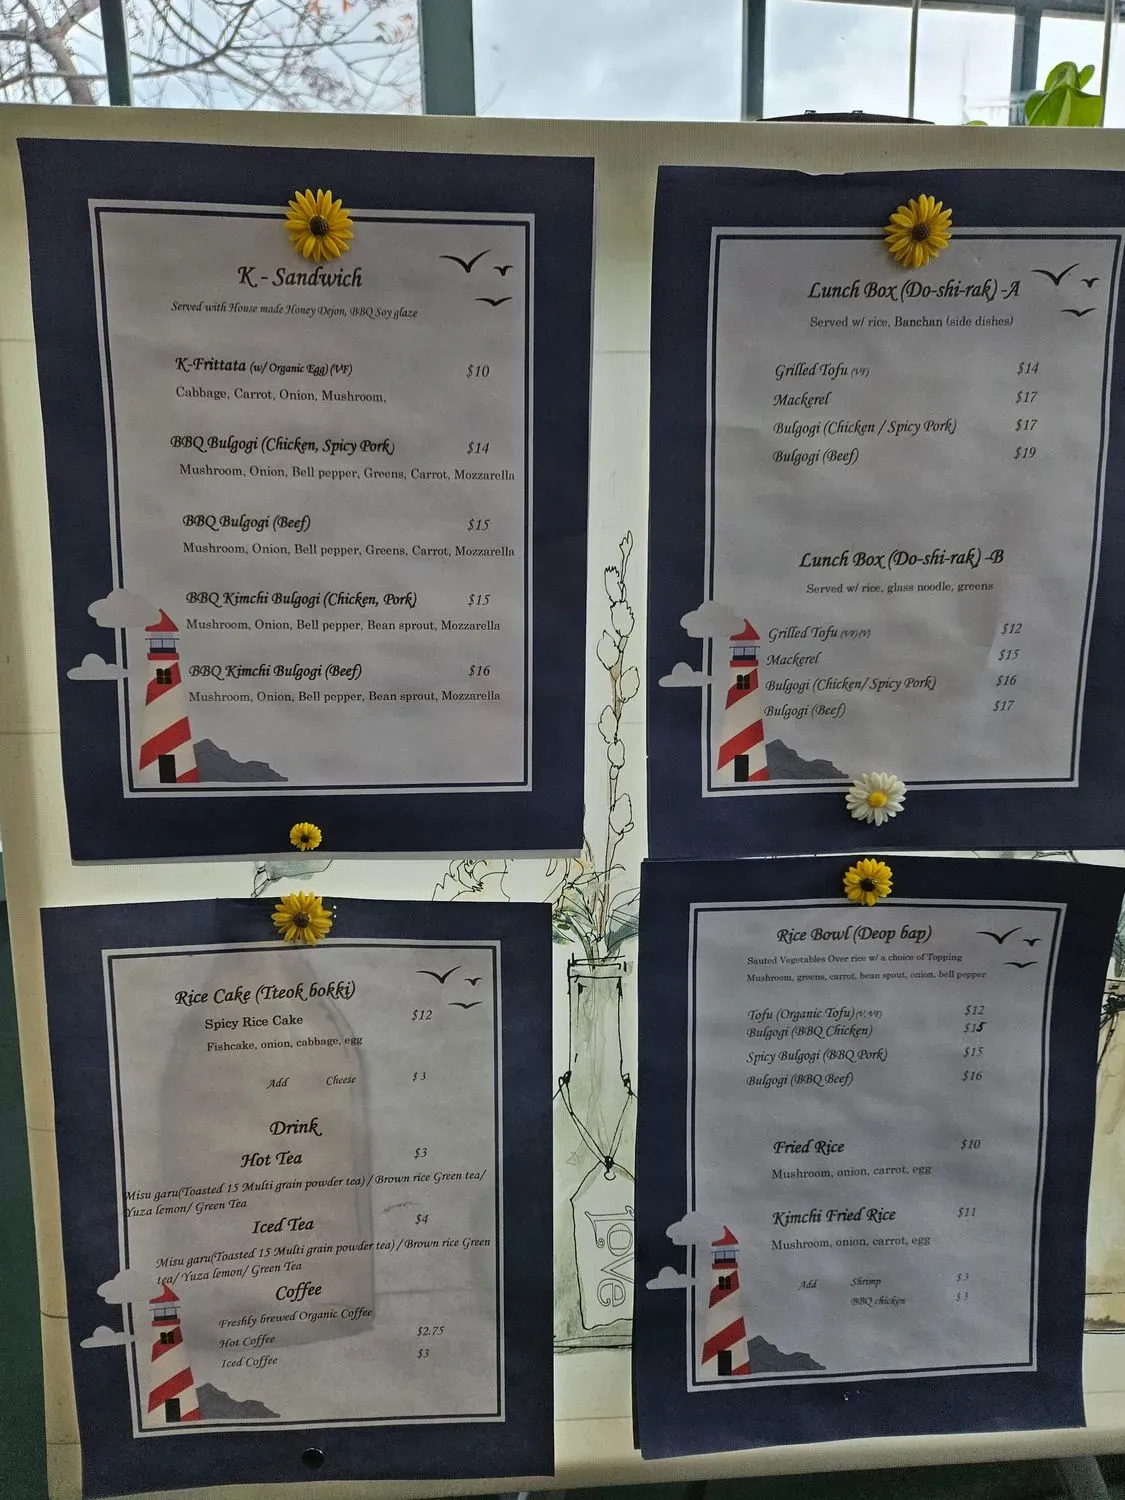 K - Sandwich
Served with House made Honey Dejon, BBQ Soy glaze
K-Frittata (w/ Organic Egg) (VF) $10
Cabbage, Carrot, Onion, Mushroom,
BBQ Bulgogi (Chicken, Spicy Pork) $14
Mushroom, Onion, Bell pepper, Greens, Carrot, Mozzarella
BBQ Bulgogi (Beef) $15
Mushroom, Onion, Bell pepper, Greens, Carrot, Mozzarella
BBQ Kimchi Bulgogi (Chicken, Pork) $15
Mushroom, Onion, Bell pepper, Bean sprout, Mozzarella
BBQ Kimchi Bulgogi (Beef) $16
Mushroom, Onion, Bell pepper, Bean sprout, Mozzarella
Lunch Box (Do-shi-rak) -A
Served w/ rice, Banchan (side dishes)
Grilled Tofu (VF) $14
Mackerel $17
Bulgogi (Chicken / Spicy Pork) $17
Bulgogi (Beef) $19
Lunch Box (Do-shi-rak) -B
Served w/ rice, glass noodle, greens
Grilled Tofu (VF) (V) $12
Mackerel $15
Bulgogi (Chicken/ Spicy Pork) $16
Bulgogi (Beef) $17
Rice Cake (Tteok bokki)
Spicy Rice Cake $12
Fishcake, onion, cabbage, egg
Add Cheese $3
Drink
Hot Tea $3
Misu garu(Toasted 15 Multi grain powder tea) / Brown rice Green tea/
Yuza lemon/ Green Tea
Iced Tea $4
Misu garu(Toasted 15 Multi grain powder tea) / Brown rice Green
tea/ Yuza lemon/ Green Tea
Coffee
Freshly brewed Organic Coffee
Hot Coffee $2.75
Iced Coffee $3
Rice Bowl (Deop bap)
Sauted Vegetables Over rice w/ a choice of Topping
Mushroom, greens, carrot, bean spout, onion, bell pepper
Tofu (Organic Tofu) (V, VF) $12
Bulgogi (BBQ Chicken) $15
Spicy Bulgogi (BBQ Pork) $15
Bulgogi (BBQ Beef) $16
Fried Rice $10
Mushroom, onion, carrot, egg
Kimchi Fried Rice $11
Mushroom, onion, carrot, egg
Add Shrimp $3
BBQ chicken $3
love